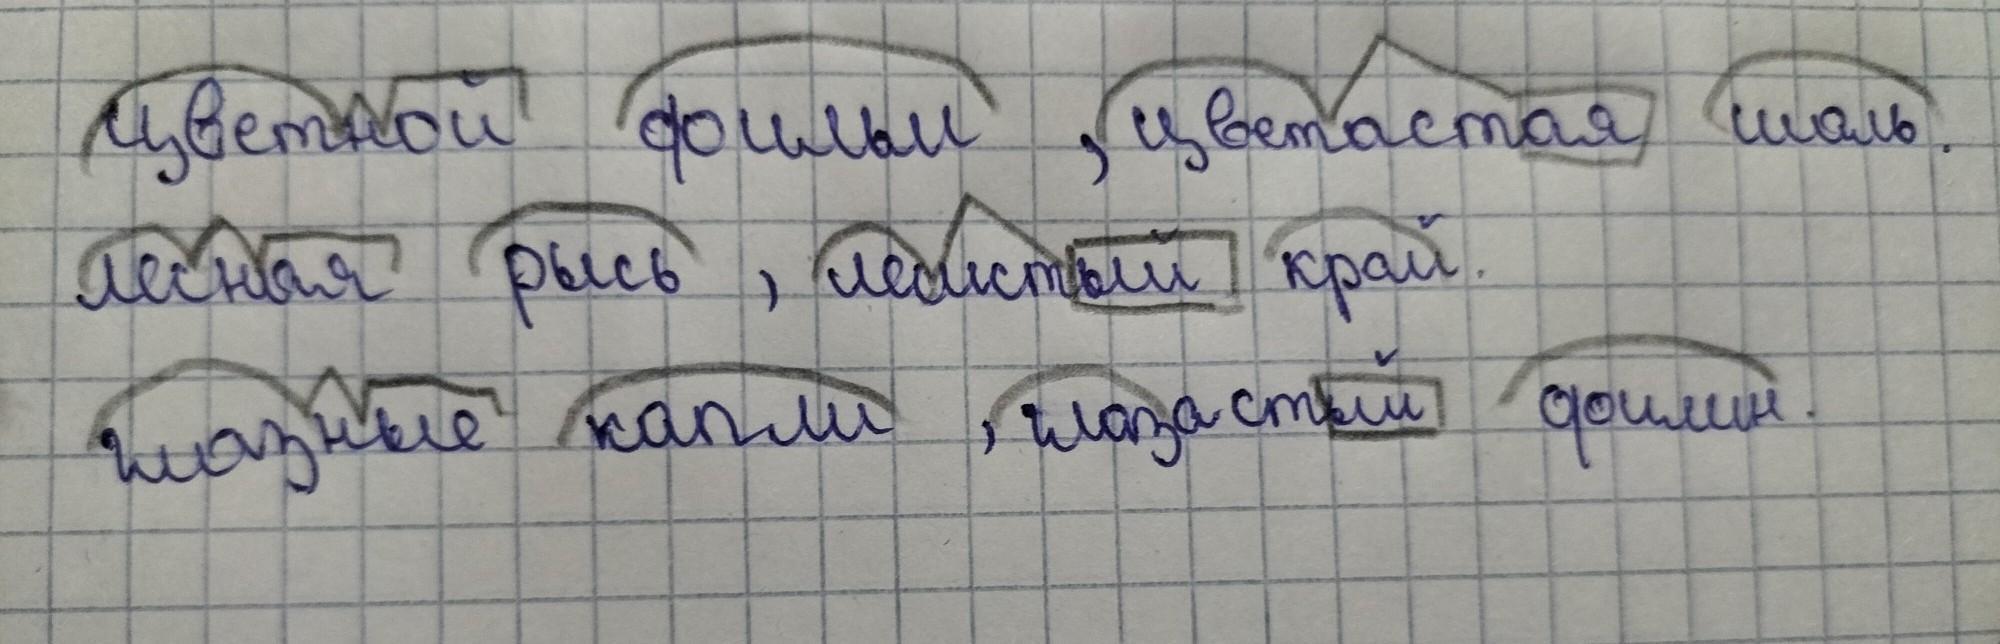 цветной фильм, цветастая шаль.
лесная рысь, лесистый край.
глазные капли, глазастый филин.